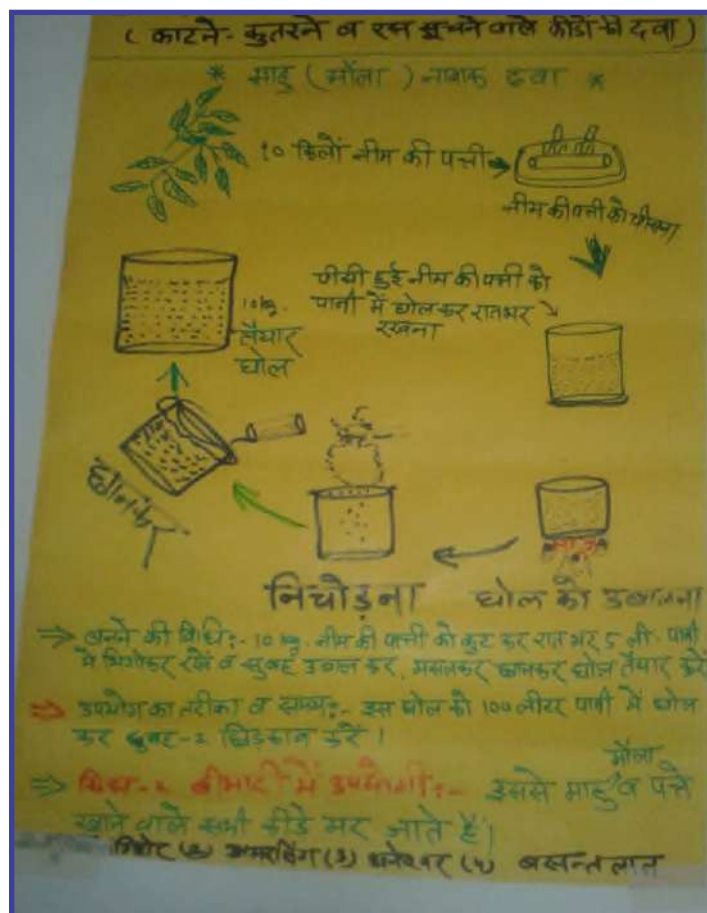 ( काटने - कुतरने व रस चूसने वाले कीडों की दवा )
* माहु ( मौला ) नाशक दवा *
10 किलों नीम की पत्ती
नीम की पत्ती को पीसना
पीसी हुई नीम की पत्ती को
पानी में घोल कर रातभर
रखना
10 kg.
तैयार
घोल
छानकर
निचोड़ना घोल को उबालना
⇒ बनने की विधि :- 10 kg. नीम की पत्ती को कुट कर रात भर 5 ली. पानी
में भिगोकर रखें व सुबह उबाल कर, मसलकर छानकर घोल तैयार करें
⇒ उपयोग का तरीका व समय :- इस घोल को 100 लीटर पानी में घोल
कर सुबह - 2 छिड़काव करें ।
मौला
⇒ किस - 2 बीमारी में उपयोगी :- इससे माहु व पत्ते
खाने वाले सभी कीडे मर जाते है।
(2) अमरसिंग (3) (4) बसन्तलाल